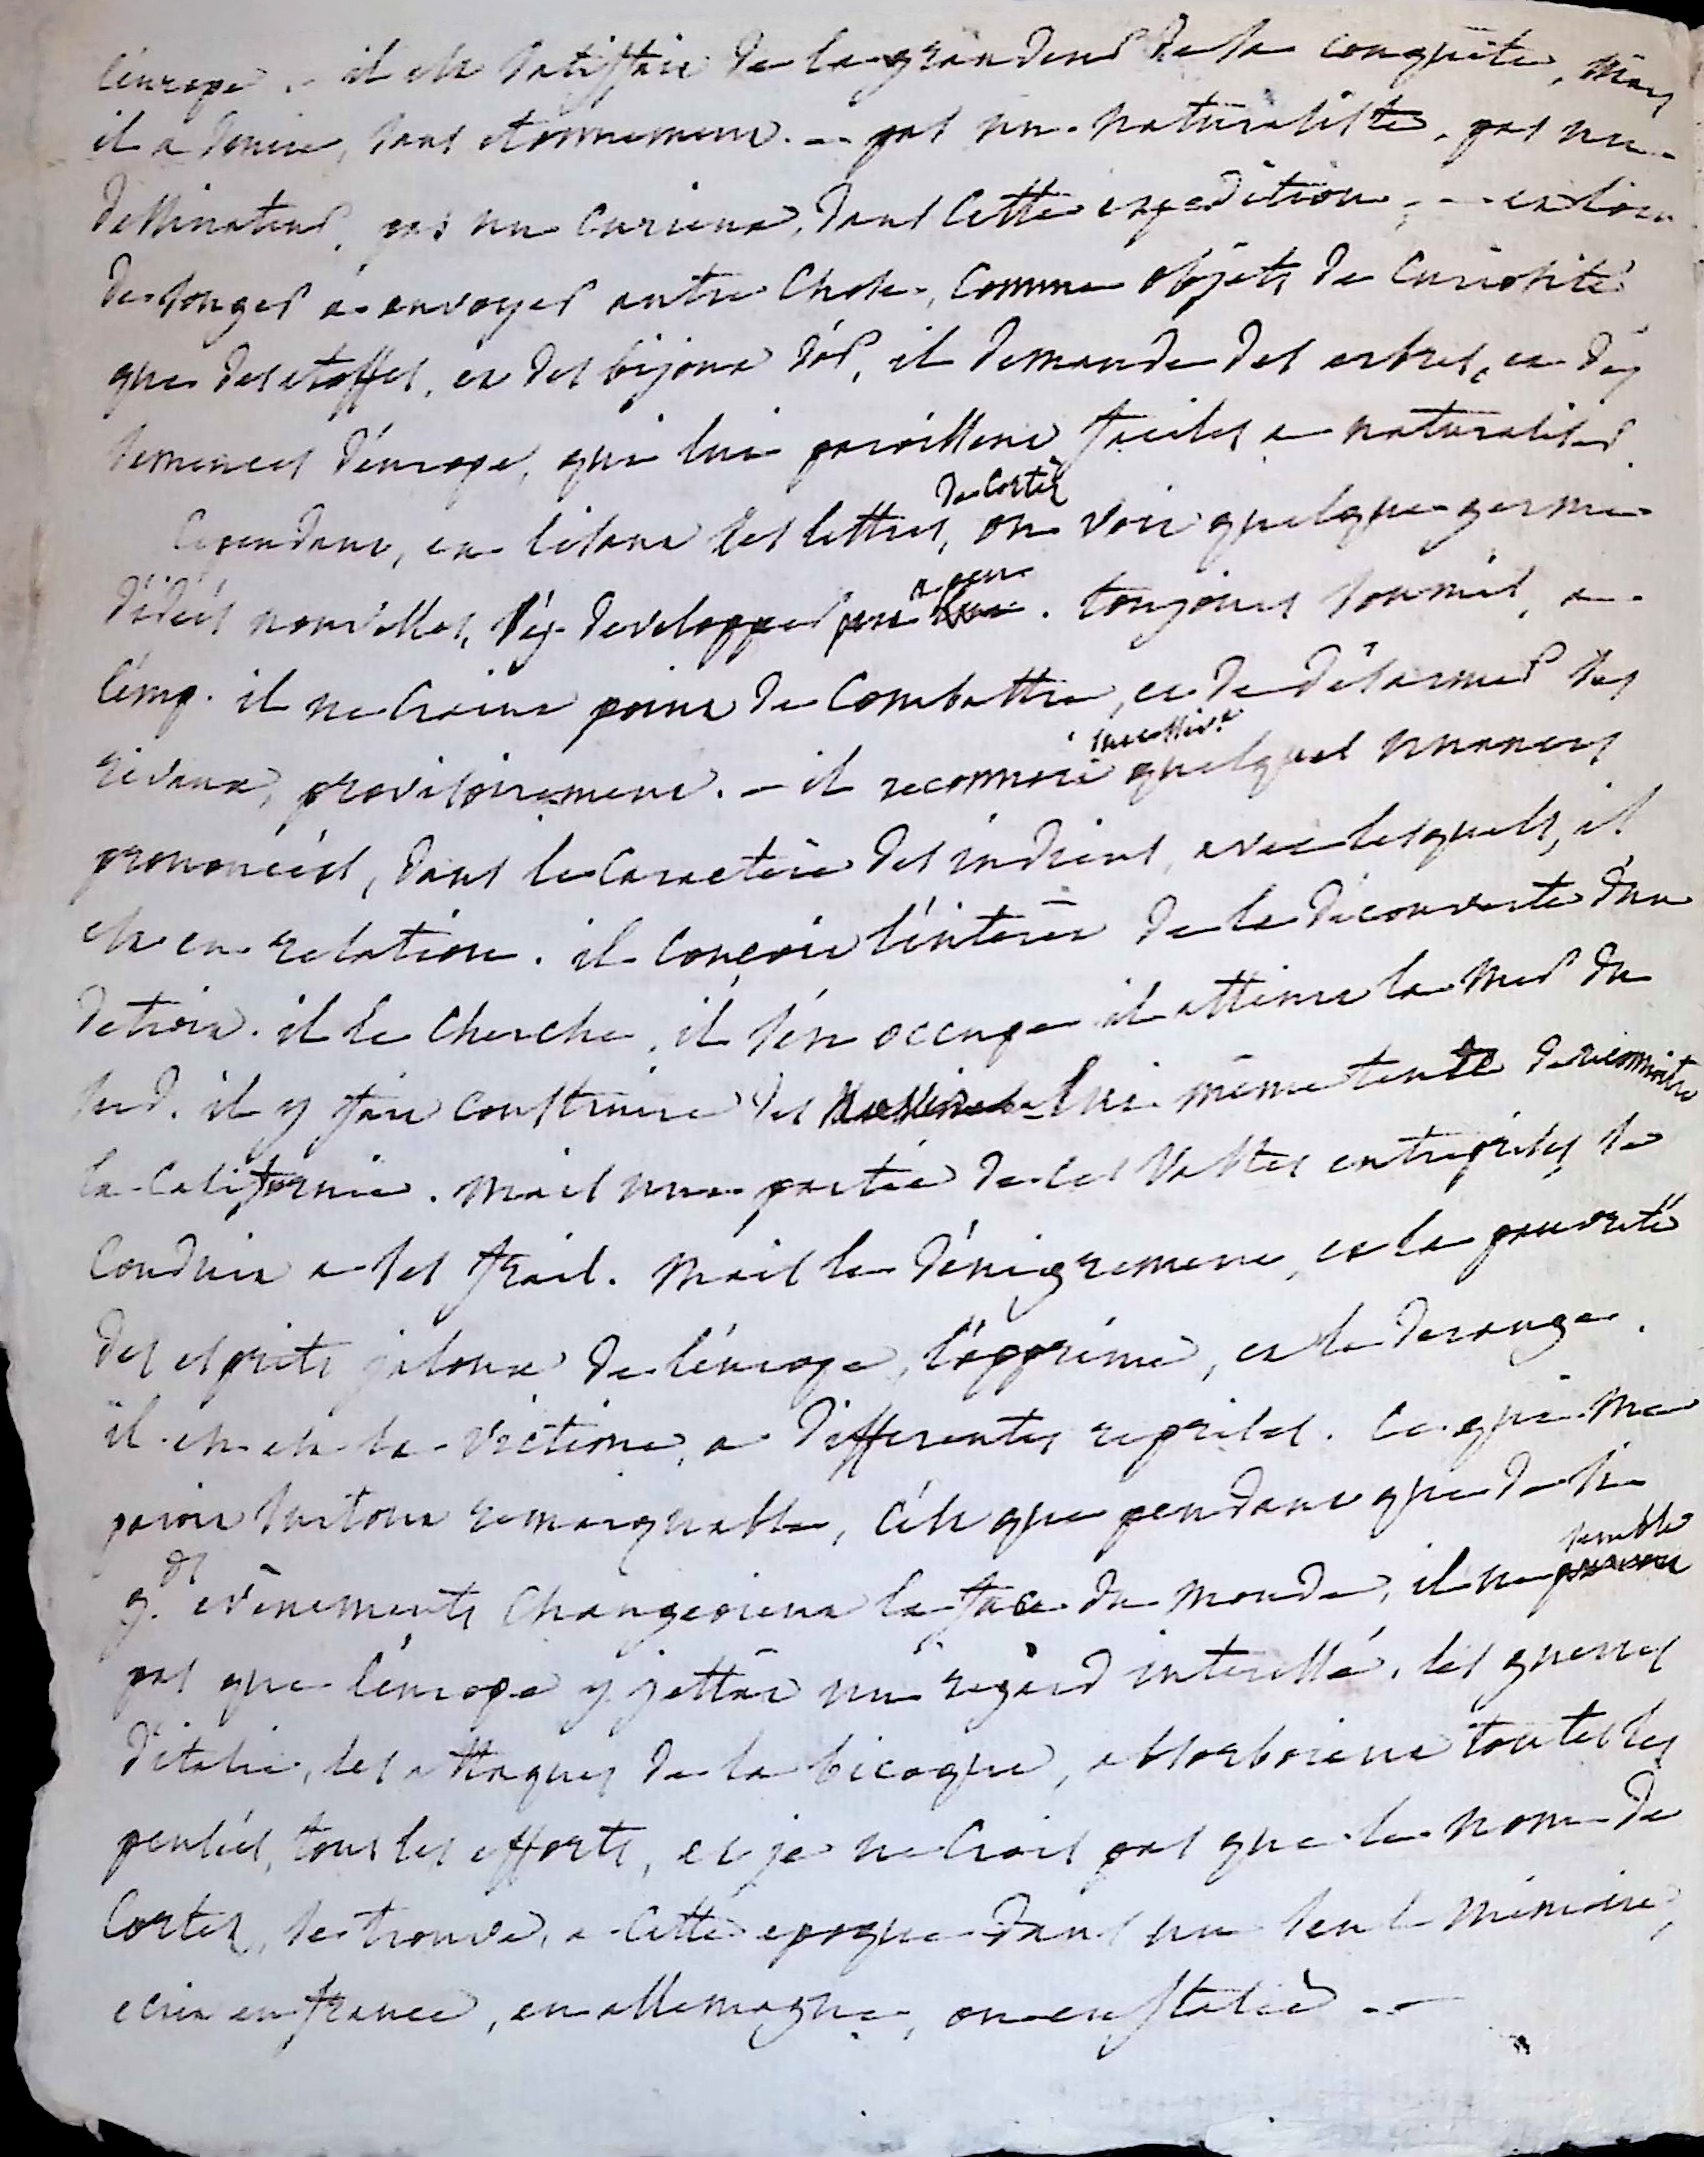 l'europe. - il est satisfait de la grandeur de sa conquête, mais
il a denire, sans etonnement. -- pas un naturaliste, pas un
dessinateur, pas un curieux, dans cette expedition, -- et loin
de songer a envoyer autre chose, comme objets de curiosité
que des etoffes, et des bijoux d'or, il demande des arbres, et des
semences d'europe, qui lui paroissent faciles a naturaliser.
de Cortez
Cependant, en lisant ses lettres, on voit quelque germe
a peu
d'idées nouvelles, s'y developper peu. toujours soumis, a
l'emp. il ne craint point de combattre, et de désarmer ses
successivt
rivaux, provisoirement. - il reconnait quelques nuances
prononcées, dans le caractère des indiens, avec lesquels, il
est en relation. il conçoit l'intérêt de la découverte d'un
detroit. il le cherche, il s'en occupe il atteint la mer du
sud. il y fait construire des lui même tente de reconnoitre
la Californie. mais une partie de ces vastes entreprises se
conduit a ses frais. mais le dénigrement, et la pauvreté
des esprits jaloux de l'europe, l'opprime, et le derange.
il en est la victime, a differentes reprises. ce qui me
paroit surtout remarquable, c'est que pendant que de si
semble
gds evènements changeoient la face du monde, il ne
pas que l'europe y jettât un regard interessé. les guerres
d'italie, les attaques de la bicoque, absorboient toutes les
pensées, tous les efforts, et je ne crois pas que le nom de
Cortez, se trouve, a cette epoque dans un seul mémoire,
ecrit en france, en allemagne, ou en italie --